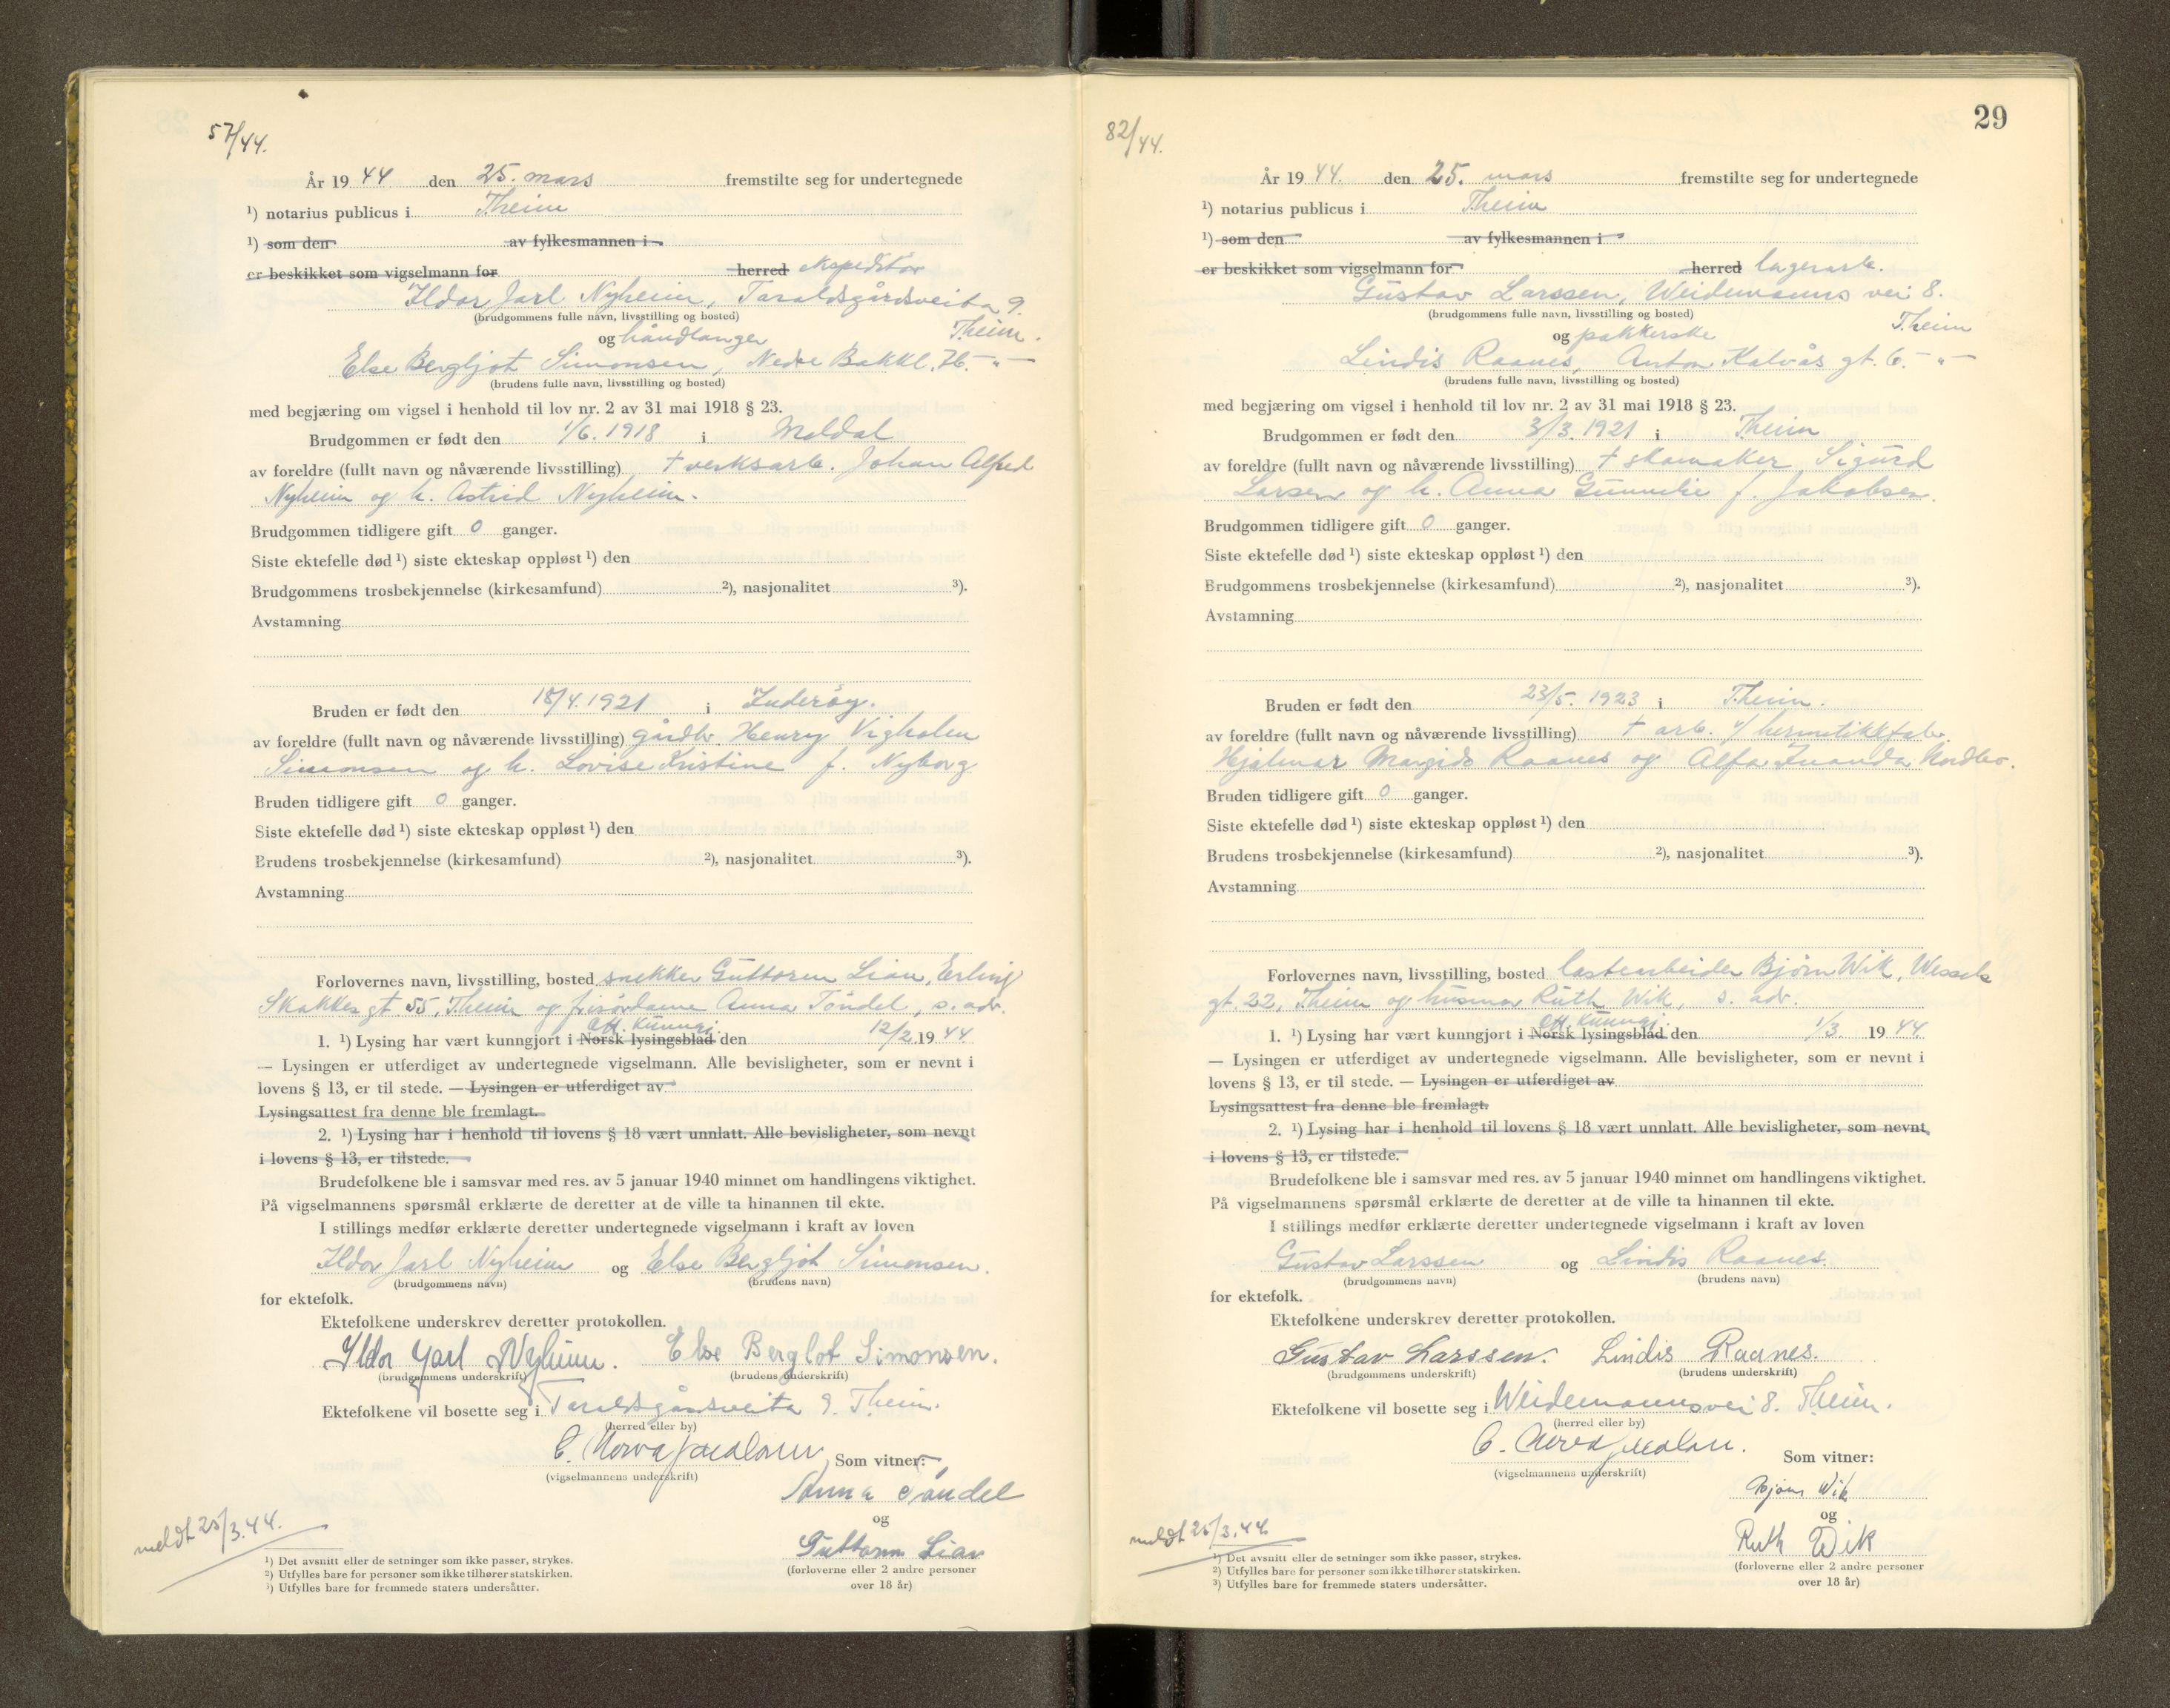 57/44.
År 19 44 den 25. mars fremstilte seg for undertegnede
¹) notarius publicus i Theim
¹) som den av fylkesmannen i
er beskikket som vigselmann for herred ekspeditør
Ildor Jarl Nyheim, Taraldsgårdsveita 9.
(brudgommens fulle navn, livsstilling og bosted)
og håndlanger Theim.
Else Bergljot Simonsen, Nedre Bakkl. 76. - " -
(brudens fulle navn, livsstilling og bosted)
med begjæring om vigsel i henhold til lov nr. 2 av 31 mai 1918 § 23.
Brudgommen er født den 1/6. 1918 i Meldal
av foreldre (fullt navn og nåværende livsstilling) † verksarb. Johan Alfred
Nyheim og h. Astrid Nyheim.
Brudgommen tidligere gift 0 ganger.
Siste ektefelle død ¹) siste ekteskap oppløst ¹) den
Brudgommens trosbekjennelse (kirkesamfund) ²), nasjonalitet ³).
Avstamning
Bruden er født den 18/4. 1921 i Inderøy.
av foreldre (fullt navn og nåværende livsstilling) gårdbr. Henry Vigholen
Simonsen og h. Lovise Kristine f. Nyborg
Bruden tidligere gift 0 ganger.
Siste ektefelle død ¹) siste ekteskap oppløst ¹) den
Brudens trosbekjennelse (kirkesamfund) ²), nasjonalitet ³).
Avstamning
Forlovernes navn, livsstilling, bosted snekker Guttorm Lian, Erling
Skakkes gt 55, Theim og frisørdame Anna Töndel, s. adr.
Off. kunngj.
1. ¹) Lysing har vært kunngjort i Norsk lysingsblad den 12/2 19 44
— Lysingen er utferdiget av undertegnede vigselmann. Alle bevisligheter, som er nevnt i
lovens § 13, er til stede. — Lysingen er utferdiget av
Lysingsattest fra denne ble fremlagt.
2. ¹) Lysing har i henhold til lovens § 18 vært unnlatt. Alle bevisligheter, som nevnt
i lovens § 13, er tilstede.
Brudefolkene ble i samsvar med res. av 5 januar 1940 minnet om handlingens viktighet.
På vigselmannens spørsmål erklærte de deretter at de ville ta hinannen til ekte.
I stillings medfør erklærte deretter undertegnede vigselmann i kraft av loven
Ildor Jarl Nyheim og Else Bergljot Simonsen.
(brudgommens navn) (brudens navn)
for ektefolk.
Ektefolkene underskrev deretter protokollen.
Ildor Jarl Nyheim. Else Berglot Simonsen.
(brudgommens underskrift) (brudens underskrift)
Ektefolkene vil bosette seg i Taraldsgårdsveita 9. Theim.
(herred eller by)
Som vitner:
(vigselmannens underskrift)
Anna Töndel
og
Guttorm Lian
(forloverne eller 2 andre personer
over 18 år)
meldt 25/3.44.
¹) Det avsnitt eller de setninger som ikke passer, strykes.
²) Utfylles bare for personer som ikke tilhører statskirken.
³) Utfylles bare for fremmede staters undersåtter.
29
82/44.
År 19 44. den 25. mars fremstilte seg for undertegnede
¹) notarius publicus i Theim
¹) som den av fylkesmannen i
er beskikket som vigselmann for herred lagerarb.
Gustav Larssen, Weidemanns vei 8.
(brudgommens fulle navn, livsstilling og bosted)
og pakkerske Theim
Lindis Raanes, Anton Kalvås gt. 6. - " -
(brudens fulle navn, livsstilling og bosted)
med begjæring om vigsel i henhold til lov nr. 2 av 31 mai 1918 § 23.
Brudgommen er født den 3/3. 1921 i Theim
av foreldre (fullt navn og nåværende livsstilling) † skomaker Sigurd
Larsen og h. Anna Gunnelie f. Jakobsen.
Brudgommen tidligere gift 0 ganger.
Siste ektefelle død ¹) siste ekteskap oppløst ¹) den
Brudgommens trosbekjennelse (kirkesamfund) ²), nasjonalitet ³).
Avstamning
Bruden er født den 23/5. 1923 i Theim.
av foreldre (fullt navn og nåværende livsstilling) † arb. v/ hermetikkfabr.
Hjalmar Margido Raanes og Alfa Inanda Nordbo.
Bruden tidligere gift 0 ganger.
Siste ektefelle død ¹) siste ekteskap oppløst ¹) den
Brudens trosbekjennelse (kirkesamfund) ²), nasjonalitet ³).
Avstamning
Forlovernes navn, livsstilling, bosted lastearbeider Björn Wik, Wessels
gt. 22, Theim og husmor Ruth Wik, s. adr.
Off. kunngj.
1. ¹) Lysing har vært kunngjort i Norsk lysingsblad den 1/3. 19 44.
— Lysingen er utferdiget av undertegnede vigselmann. Alle bevisligheter, som er nevnt i
lovens § 13, er til stede. — Lysingen er utferdiget av
Lysingsattest fra denne ble fremlagt.
2. ¹) Lysing har i henhold til lovens § 18 vært unnlatt. Alle bevisligheter, som nevnt
i lovens § 13, er tilstede.
Brudefolkene ble i samsvar med res. av 5 januar 1940 minnet om handlingens viktighet.
På vigselmannens spørsmål erklærte de deretter at de ville ta hinannen til ekte.
I stillings medfør erklærte deretter undertegnede vigselmann i kraft av loven
Gustav Larssen og Lindis Raanes.
(brudgommens navn) (brudens navn)
for ektefolk.
Ektefolkene underskrev deretter protokollen.
Gustav Larssen. Lindis Raanes.
(brudgommens underskrift) (brudens underskrift)
Ektefolkene vil bosette seg i Weidemannsvei 8. Theim.
(herred eller by)
Som vitner:
(vigselmannens underskrift)
Bjørn Wik
og
Ruth Wik
(forloverne eller 2 andre personer
over 18 år)
meldt 25/3.44.
¹) Det avsnitt eller de setninger som ikke passer, strykes.
²) Utfylles bare for personer som ikke tilhører statskirken.
³) Utfylles bare for fremmede staters undersåtter.